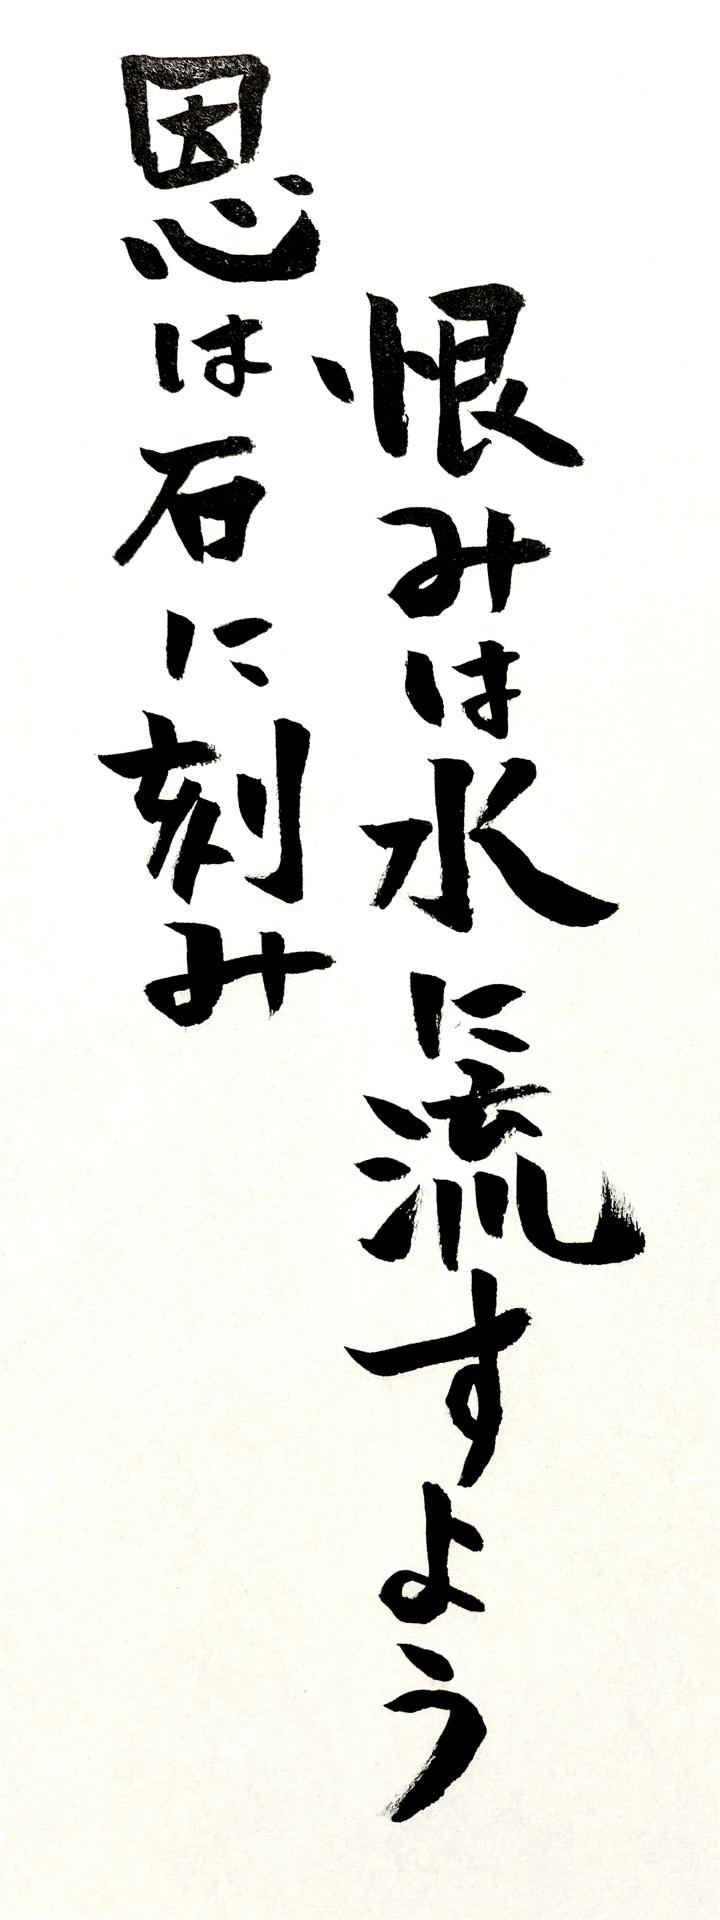 恩は石に刻み
恨みは水に流すよう